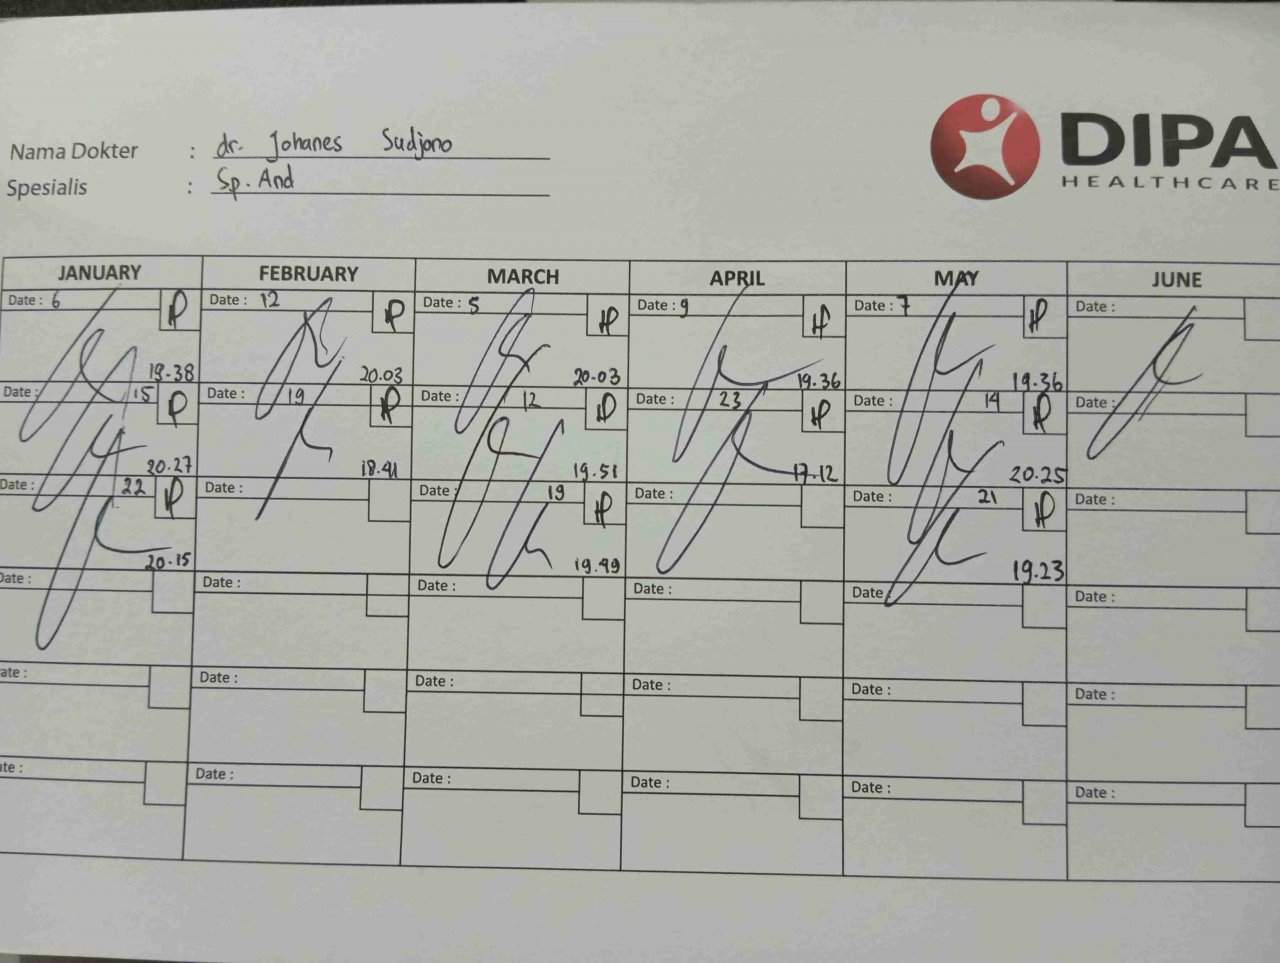 DIPA
HEALTHCARE
Nama Dokter : dr. Johanes Sudjono
Spesialis : Sp. And
JANUARY FEBRUARY MARCH APRIL MAY JUNE
Date : 6 Date : 12 Date : 5 Date : 9 Date : 7 Date :
19.38 20.03 20.03 19.36 19.36
Date : 15 Date : 19 Date : 12 Date : 23 Date : 14 Date :
20.27 18.41 19.51 17.12 20.25
Date : 22 Date : Date : 19 Date : Date : 21 Date :
20.15 19.49 19.23
Date : Date : Date : Date : Date Date :
ate : Date : Date : Date : Date : Date :
te : Date : Date : Date : Date : Date :